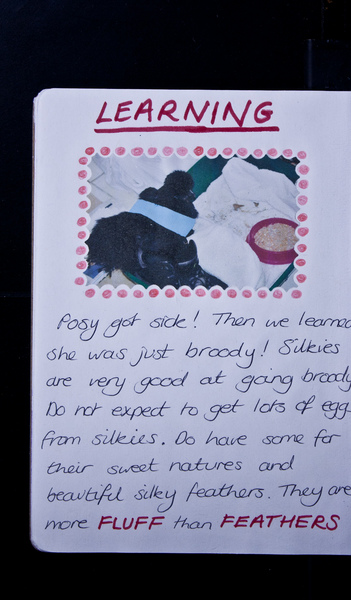 LEARNING
Posy got sick! Then we learned
she was just broody! Silkies
are very good at going broody
Do not expect to get lots of egg
from silkies. Do have some for
their sweet natures and
beautiful silky feathers. They are
more FLUFF than FEATHERS